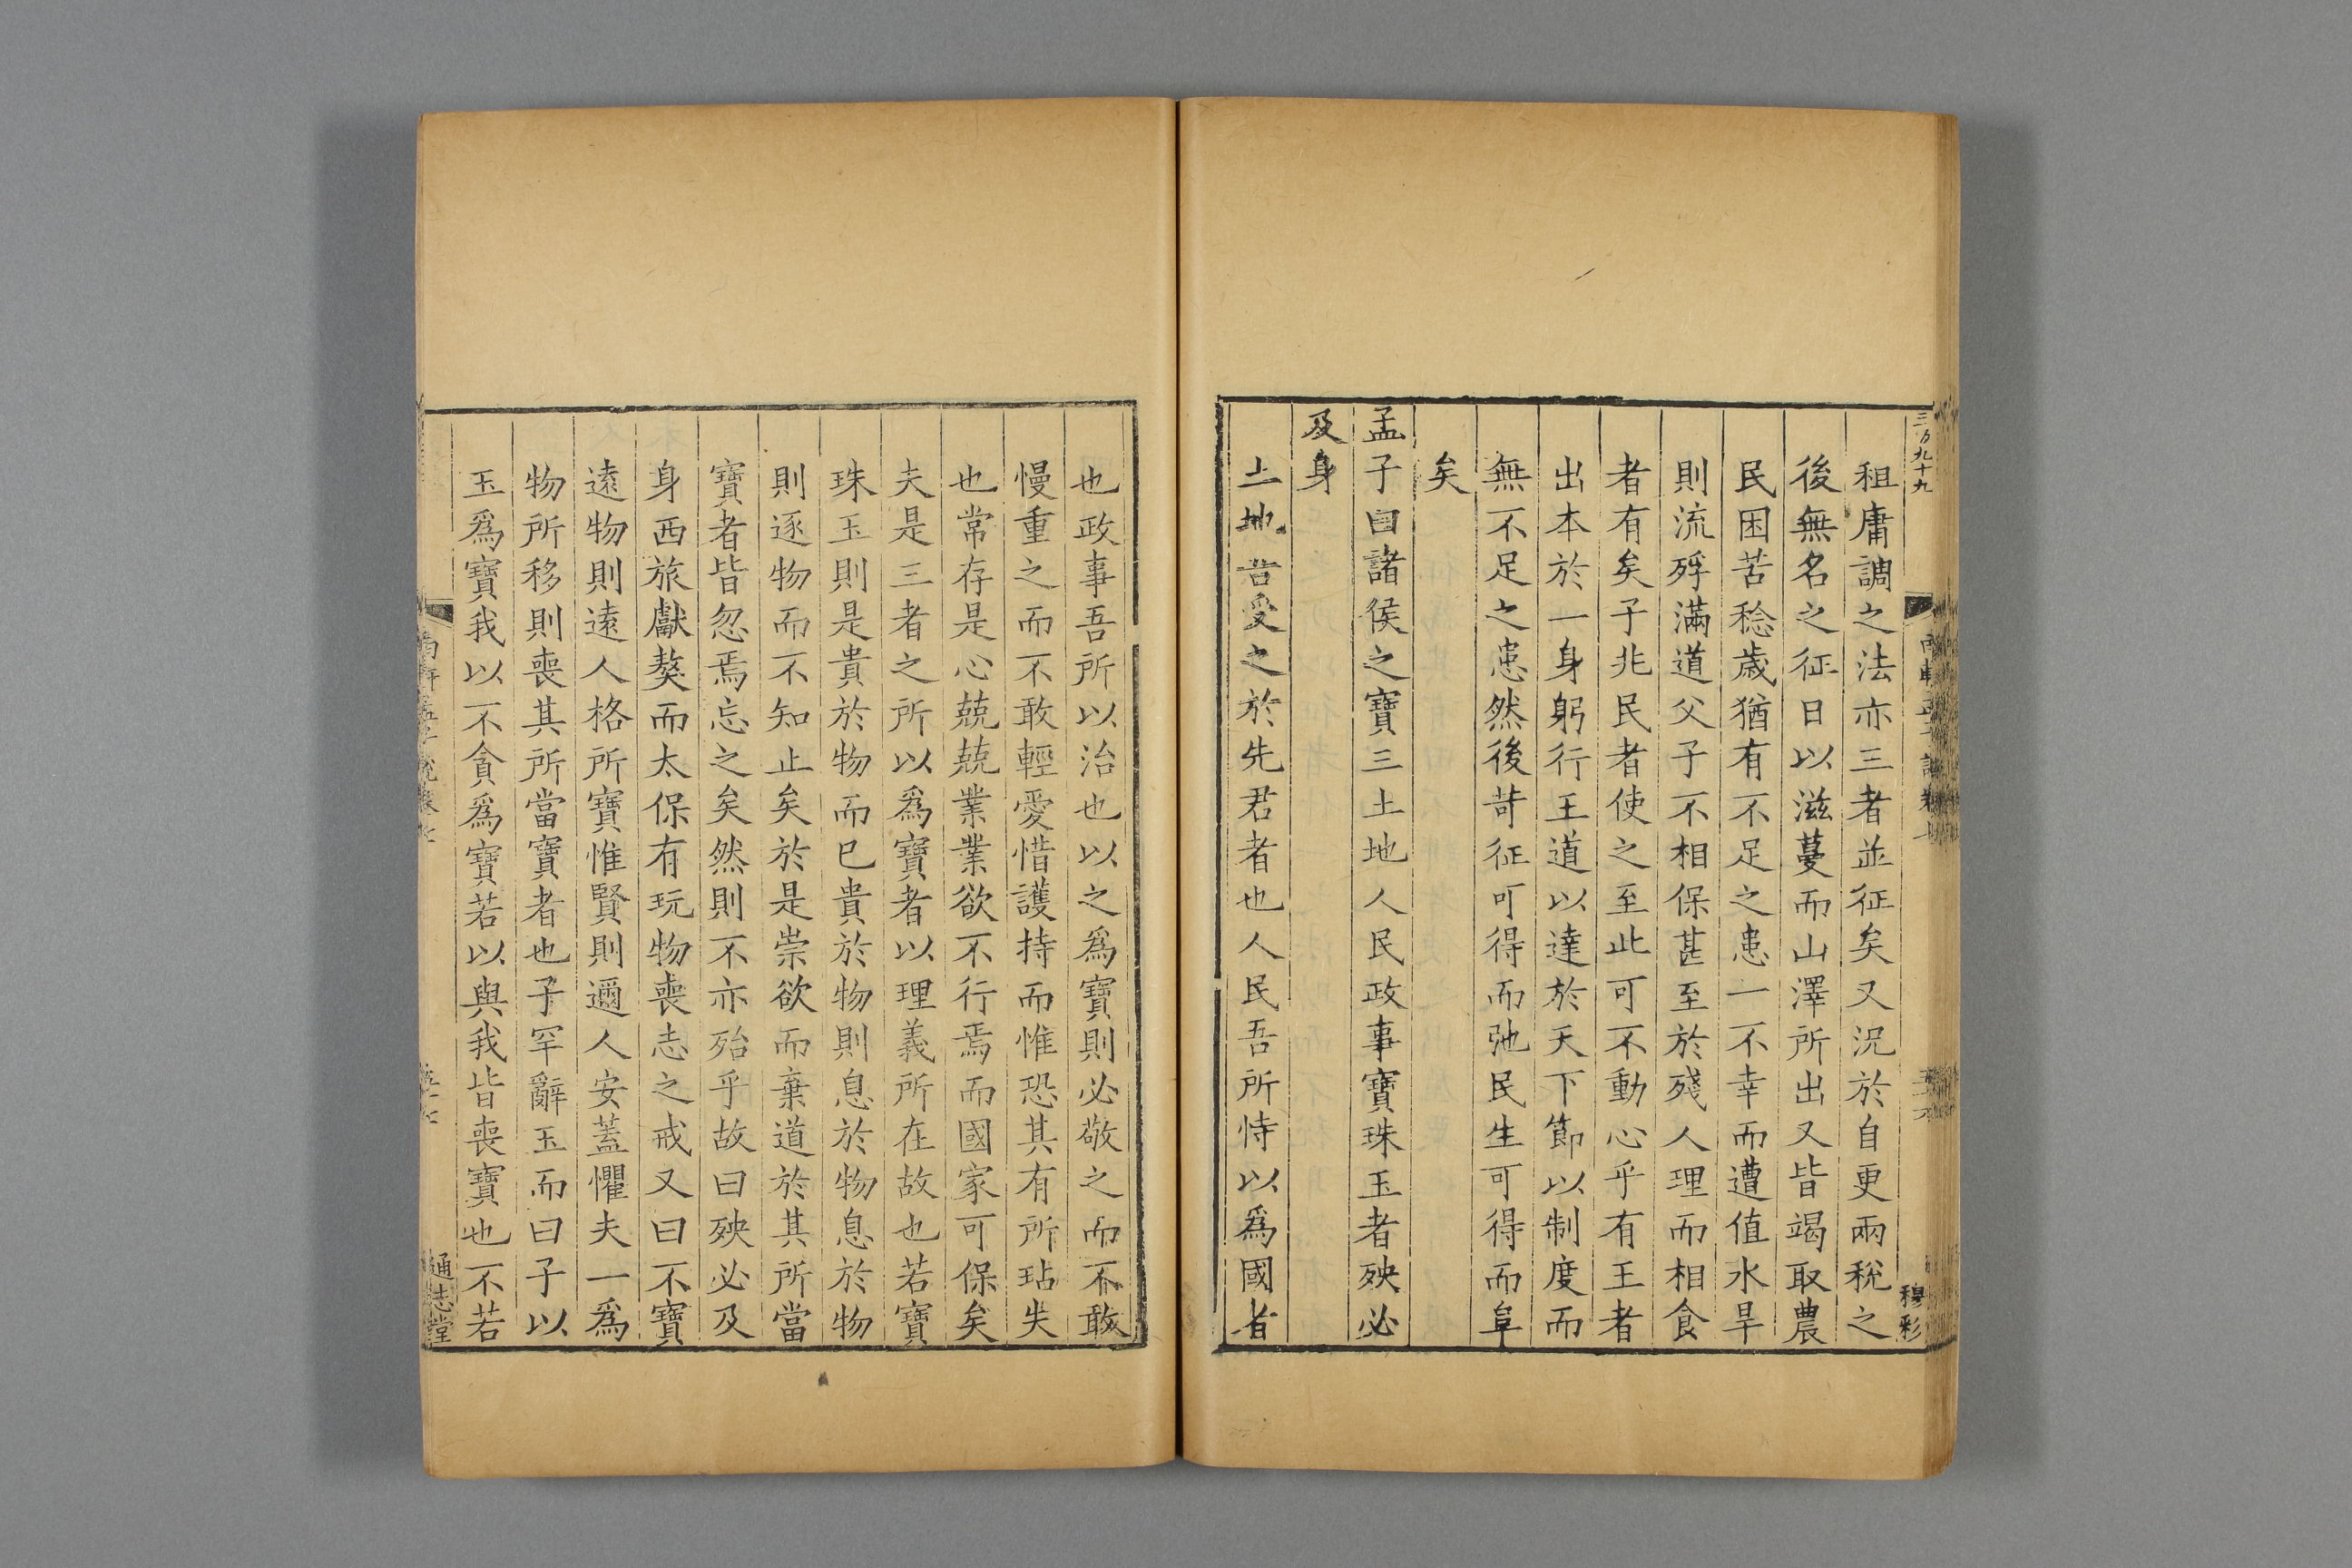 租庸調之法亦三者並征矣又況於自更兩稅之
後無名之征日以滋蔓而山澤所出又皆竭取農
民困苦稔歲猶有不足之患一不幸而遭值水旱
則流殍滿道父子不相保甚至於殘人理而相食
者有矣子兆民者使之至此可不動心乎有王者
出本於一身躬行王道以達於天下節以制度而
無不足之患然後苛征可得而弛民生可得而阜
矣
孟子曰諸侯之寶三土地人民政事寶珠玉者殃必
及身
土地吾受之於先君者也人民吾所恃以爲國者
穆彩
也政事吾所以治也以之爲寶則必敬之而不敢
慢重之而不敢輕愛惜護持而惟恐其有所玷失
也常存是心兢兢業業欲不行焉而國家可保矣
夫是三者之所以爲寶者以理義所在故也若寶
珠玉則是貴於物而已貴於物則息於物息於物
則逐物而不知止矣於是崇欲而棄道於其所當
寶者皆忽焉忘之矣然則不亦殆乎故曰殃必及
身西旅獻獒而太保有玩物喪志之戒又曰不寶
遠物則遠人格所寶惟賢則邇人安蓋懼夫一爲
物所移則喪其所當寶者也子罕辭玉而曰子以
玉爲寶我以不貪爲寶若以與我皆喪寶也不若
通志堂